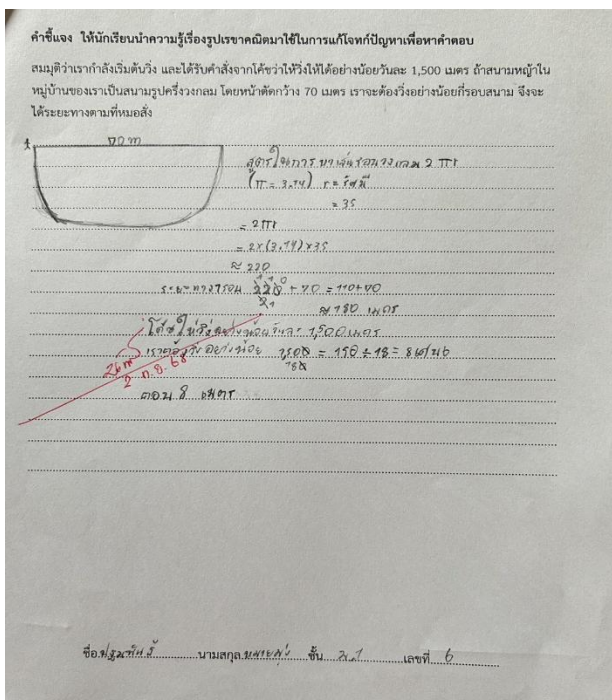 คำชี้แจง ให้นักเรียนนำความรู้เรื่องรูปเรขาคณิตมาใช้ในการแก้โจทก์ปัญหาเพื่อหาคำตอบ
สมมุติว่าเรากำลังเริ่มต้นวิ่ง และได้รับคำสั่งจากโค้ชว่าให้วิ่งให้ได้อย่างน้อยวันละ 1,500 เมตร ถ้าสนามหญ้าใน
หมู่บ้านของเราเป็นสนามรูปครึ่งวงกลม โดยหน้าตัดกว้าง 70 เมตร เราจะต้องวิ่งอย่างน้อยกี่รอบสนาม จึงจะ
ได้ระยะทางตามที่หมอสั่ง
70 m
สูตรในการหาเส้นรอบวงกลม 2 πr
(π = 3.14) r = รัศมี
= 35
= 2πr
= 2×(3.14)×35
≈ 220
ระยะทางรอบ 220/2 + 70 = 110+70
≈ 180 เมตร
โค้ชให้วิ่งอย่างน้อยวันละ 1,500 เมตร
เราต้องวิ่งอย่างน้อย 1500/180 = 150 ÷ 18 = 8 เศษ 6
ตอบ 8 เมตร
2 ก.ย. 68
ชื่อ นามสกุล ชั้น ม.1 เลขที่ 6